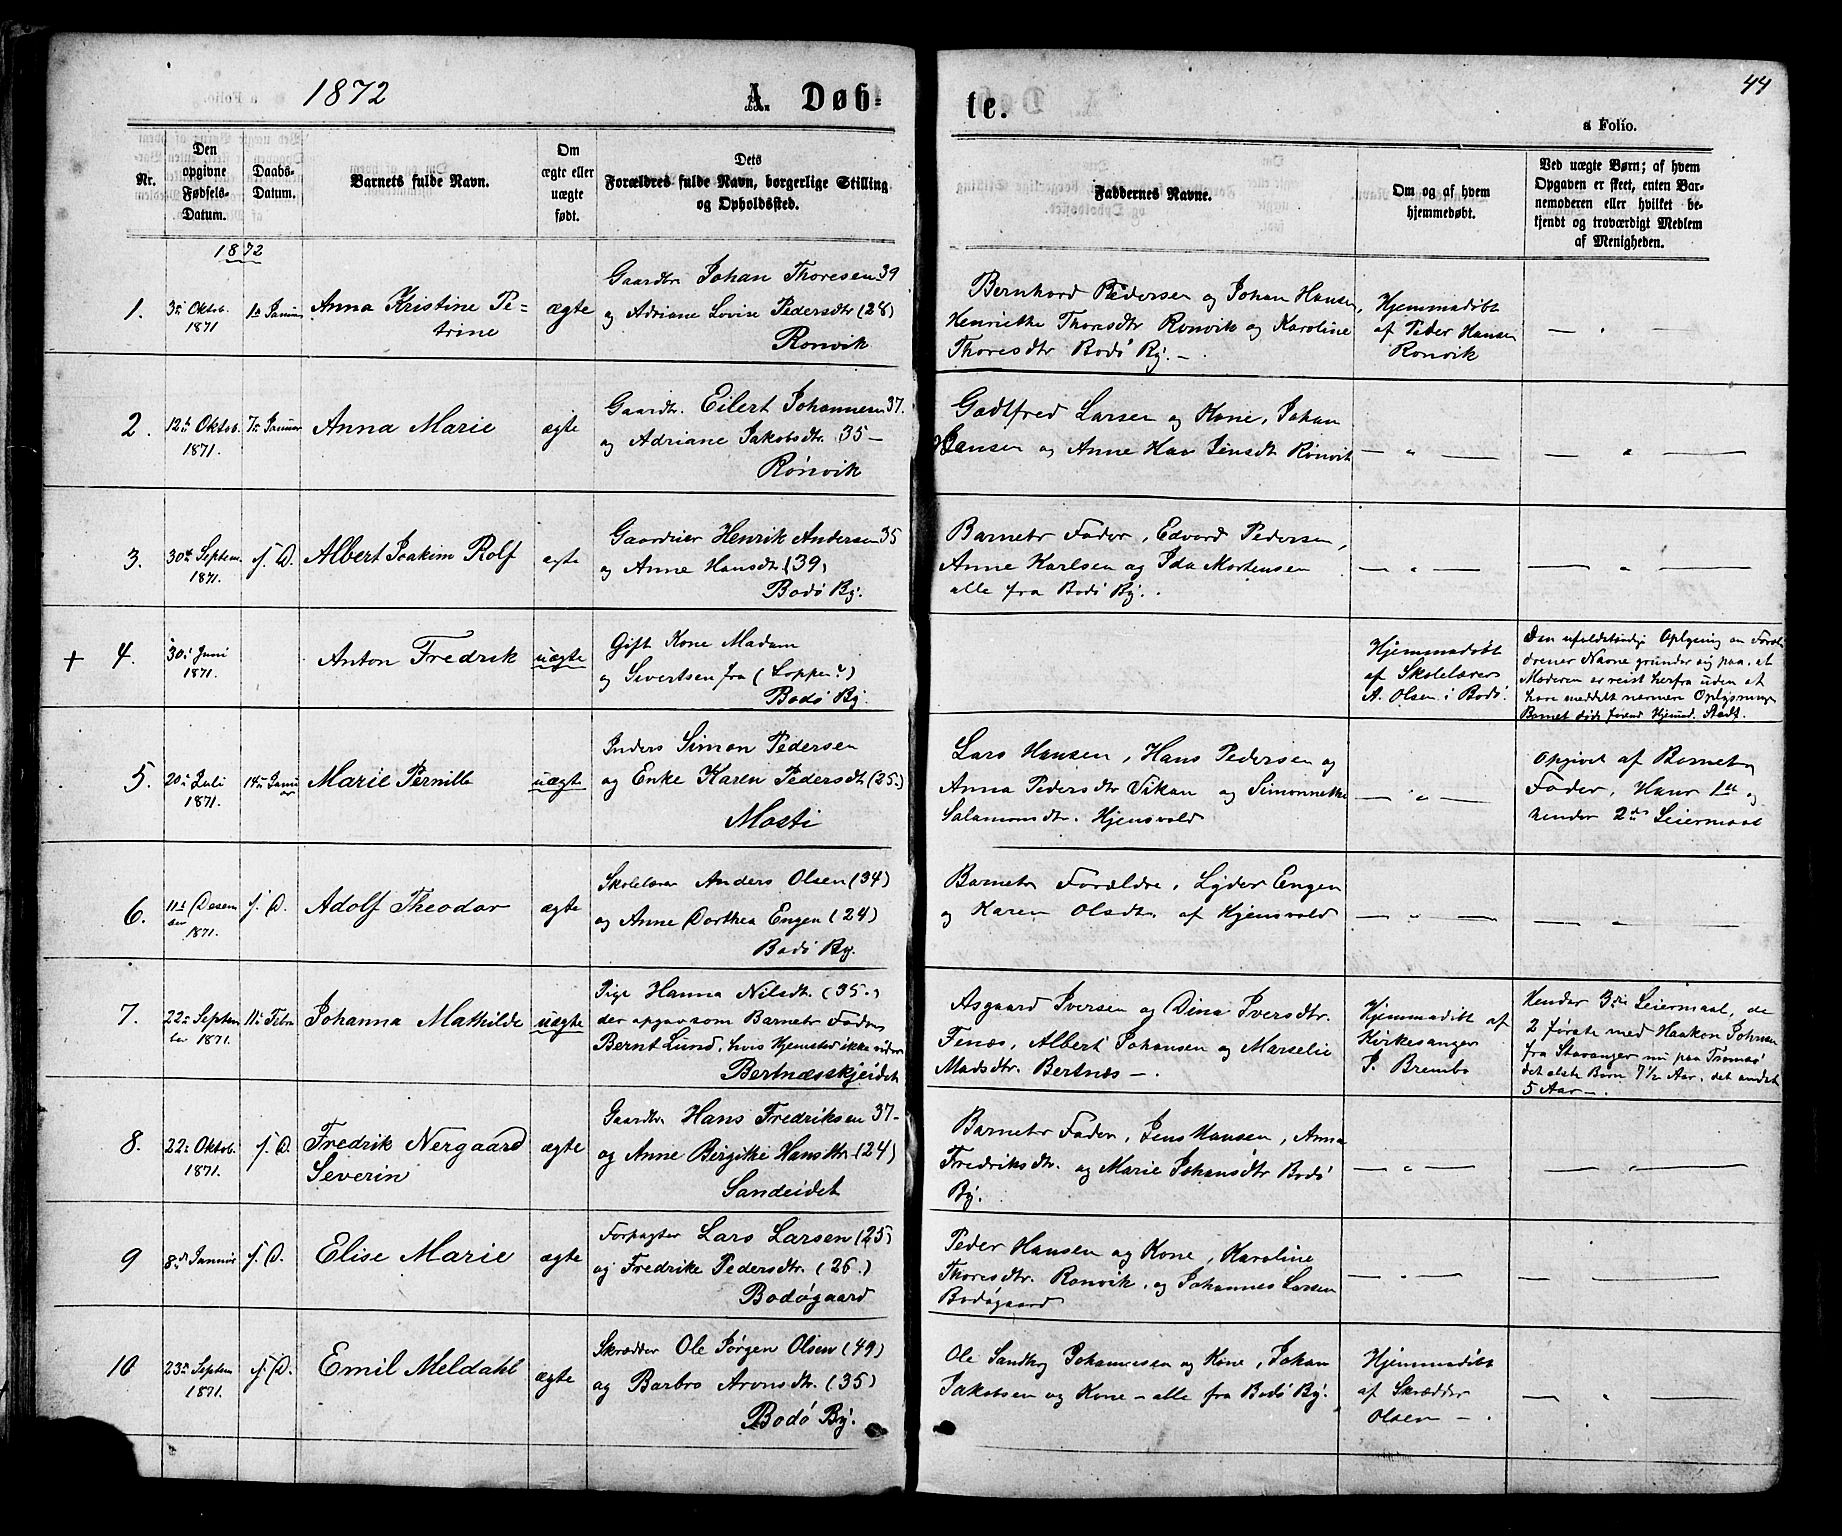 1872
A. Døb-
te.
44
a Folio.
Nr.
Den
opgivne
Fødsels-
Datum.
Daabs-
Datum.
Barnets fulde Navn.
Om
ægte eller
uægte
født.
Dets
Forældres fulde Navn, borgerlige Stilling
og Opholdssted.
Faddernes Navne.
Om og af hvem
hjemmedøbt.
Ved uægte Børn; af hvem
Opgaven er skeet, enten Bar-
nemoderen eller hvilket be-
kjendt og troværdigt Medlem
af Menigheden.
1872
1.
3die Oktob.
1871
1ste Januar
Anna Kristine Pe-
trine
ægte
Gaardbr Johan Thoresen 39
og Adriane Lovise Pedersdtr (28)
Ronvik
Bernhard Pedersen og Johan Hansen,
Henrikke Thoresdtr Ronvik og Karoline
Thoresdtr Bodö By. -
Hjemmadöbt
af Peder Hansen
Ronvik
— " —
2.
12te Oktob.
1871.
7de Januar
Anna Marie
ægte
Gaardbr. Eilert Johannesen 37.
og Adriane Jakobsdtr. 35 —
Rönvik
Godtfred Larsen og Kone, Johan
Hansen og Anne Jensdt Rönvik
— " —
— " —
3.
30te Septem.
1871.
s. D.
Albert Joakim Rolf
ægte
Henrik Andersen 35
og Anne Hansdt (39)
Bodö By.
Barnets Fader, Edvard Pedersen,
Anne Karlsen og Ida Mortensen
alle fra Bodö By.
— " —
— " —
+ 4.
30te Juni
1871.
Anton Fredrik
uægte
Gift Kone Madam
og Sivertsen fra (Loppen?)
Bodö By.
Hjemmadöbt
af Skolelærer
A. Olsen i Bodö.
Den ufuldstændige Oplysning om Foræl-
drenes Navne grunder sig paa, at
Moderen er reist herfra uden at
have meddelt nærmere Oplysninger
Barnet döde forend Hjemd. Stadf.
5.
20de Juli
1871.
14de Janu
ar
Marie Pernille
uægte
Inders Simon Pedersen
og Enke Karen Pedersdt (25)
Mosti
Lars Hansen, Hans Pedersen og
Anna Pedersdtr Vikan og Simonnette
Salamonsdtr. Hjensvold
— " —
Opgivet af Barnets
Fader, Hans 1ste og
hendes 2det Leiermaal
6.
11te Desem
ber
1871.
s. D.
Adolf Theodor
ægte
Skolelærer Anders Olsen (34)
og Anne Dorthea Engen (24)
Bodö By.
Barnets Forældre, Lyder Engen
og Karen Olsdtr. af Hjensvold
— " —
— " —
7.
22de Septem
ber 1871.
11te Febr
Johanna Mathilde
uægte
Pige Hanna Nilsdt. (35.)
der opgav som Barnets Fader
Bernt Lund, hvis Hjemsted ikke vides
Bertnæsskjeidet
Asgaard Iversen og Dina Iversdtr.
Fenæs, Albert Johansen og Marselie
Madsdtr. Bertnæs —.
Hjemmadöbt af
Kirkesanger
J. Brembo
Hendes 3die Leiermaal, de
2 förste med Haakon Johnsen
fra Stavanger nu paa Tromsö
det elste Barn 7½ Aar, det andet
5 Aar —.
8.
22de Oktob.
1871.
s. D.
Fredrik Nergaard
Severin
ægte
Gaardbr. Hans Fredriksen 37 -
og Anne Birgitte Hansdtr. (24)
Sandeidet
Barnets Fader, Jens Hansen, Anna
Fredriksdtr. og Marie Johansdtr Bodö
By.
— " —
— " —
9
8de Januar
s. D.
Elise Marie
ægte
Forpagter Lars Larsen (25)
og Fredrike Pedersdtr. (26.)
Bodögaard
Peder Hansen og Kone, Karoline
Thoresdtr. Ronvik, og Johannes Larsen
Bodögaard
— " —
— " —
10
23de Septem
1871.
s. D.
Emil Meldahl
ægte
Skrædder Ole Jörgen Olsen (49)
og Barbro Aronsdtr. (35)
Bodö By.
Ole Sandby Johannesen og Kone, Johan
Jakobsen og Kone — alle fra Bodö By.
Hjemmadöbt
af Skrædder
Olsen —.
— " —